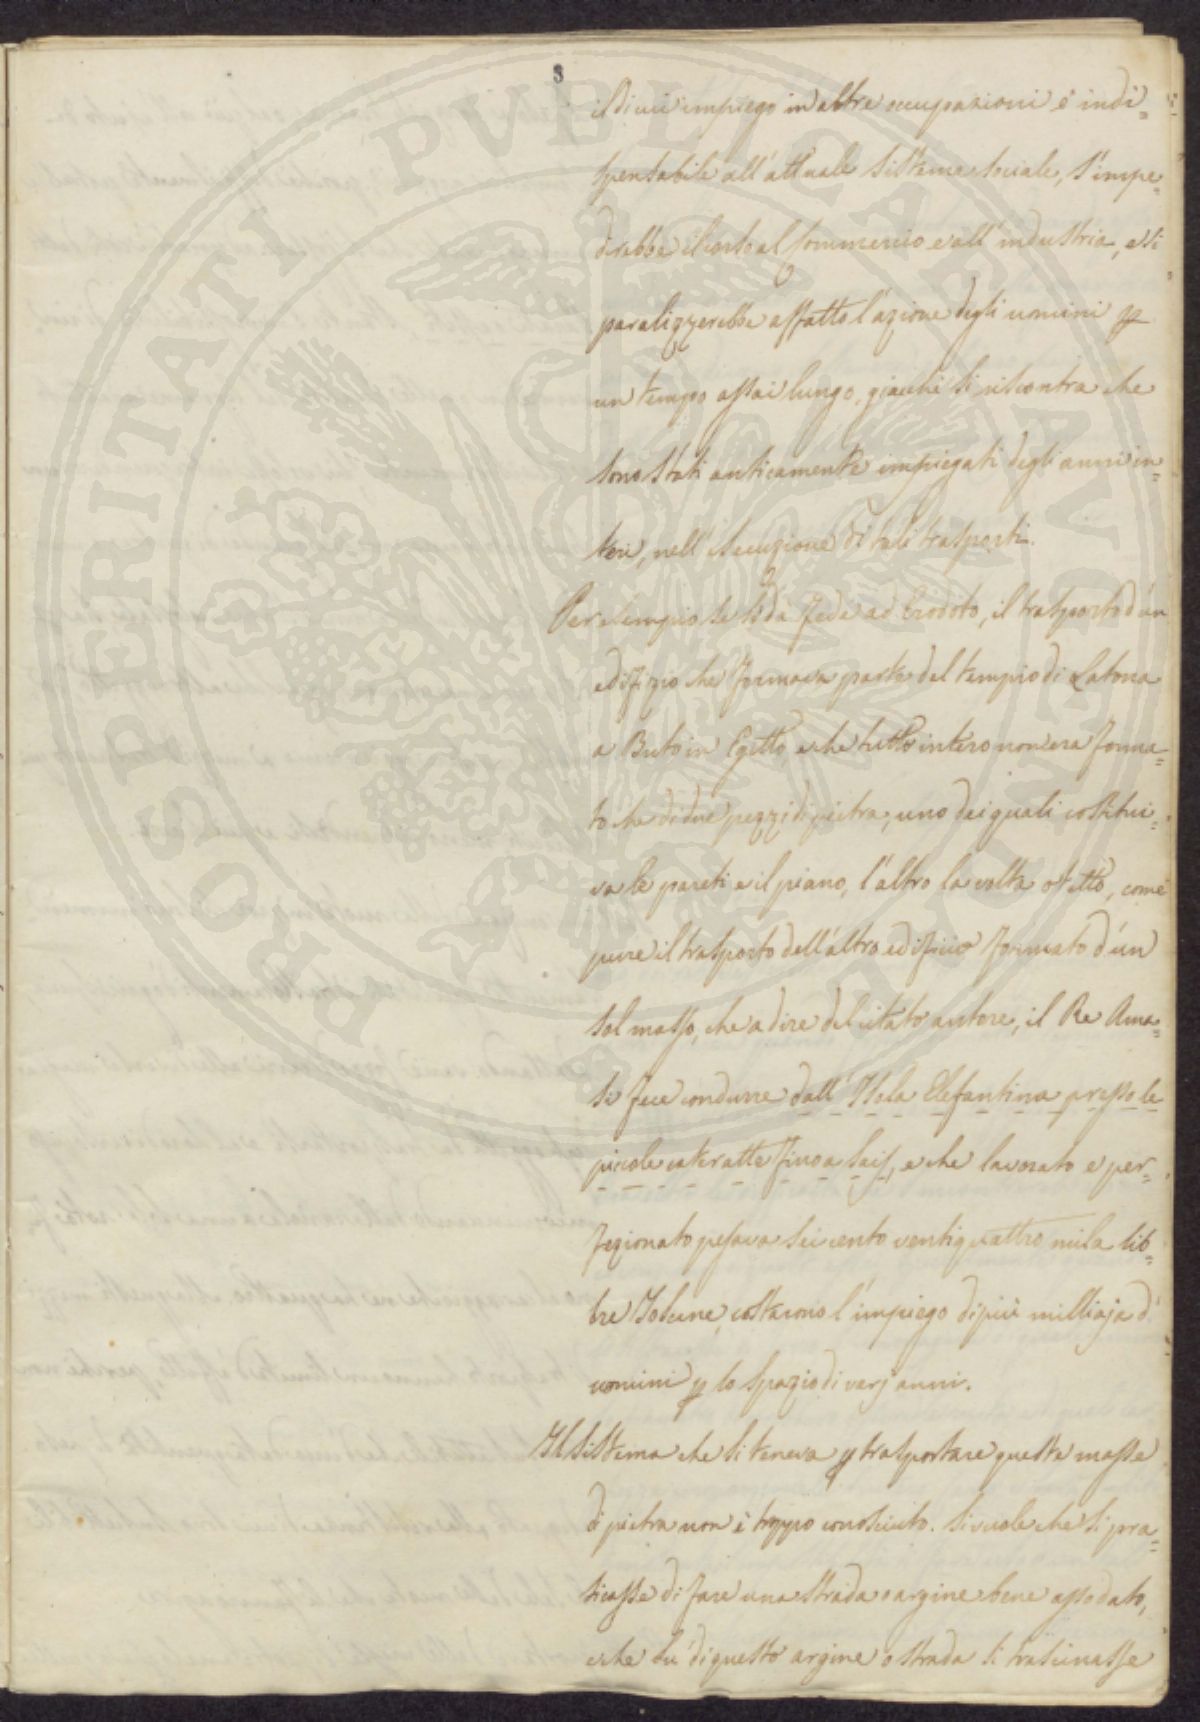 3
il di cui impiego in altre occupazioni è indi=
spensabile all'attuale sistema sociale, s'impe=
direbbe il corso al commercio e all'industria, e si
paralizzerebbe affatto l'azione degli uomini p
un tempo assai lungo, giacchè si riscontra che
sono stati anticamente impiegati degli anni in=
teri, nell'esecuzione di tali trasporti.
Per esempio se si dà fede ad Erodoto, il trasporto d'un
edifizio che formava parte del tempio di Latona
a Buto in Egitto, e che tutto intero non era forma=
to che di due pezzi di pietra, uno dei quali costitui=
va le pareti e il piano, l'altro la volta o tetto, come
pure il trasporto dell'altro edificio formato d'un
sol masso, che a dire del citato autore, il Re Ama=
si fece condurre dall'Isola Elefantina presso le
piccole cateratte fino a Sais, e che lavorato e per=
fezionato pesava seicento ventiquattro mila lib=
bre Tolune, costarono l'impiego di più milliaja d'
uomini p lo spazio di varj anni.
Il sistema che si teneva p trasportare queste masse
di pietra non è troppo conosciuto. Si vuole che si pra=
ticasse di fare una strada o argine bene assodato,
e che su di questo argine o strada si trascinasse
PROSPERITATI PUBLICAE AUGENDAE